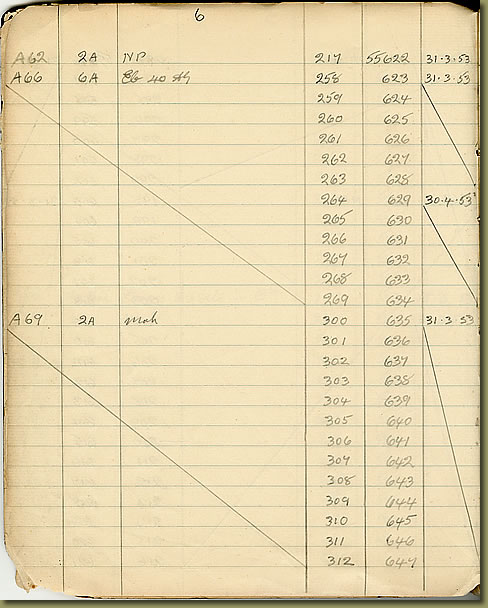 6
A62 2A NP 217 55622 31·3·53
A66 6A 258 623 31·3·53
259 624
260 625
261 626
262 627
263 628
264 629 30·4·53
265 630
266 631
267 632
268 633
269 634
A69 2A Mah 300 635 31·3·53
301 636
302 637
303 638
304 639
305 640
306 641
307 642
308 643
309 644
310 645
311 646
312 647